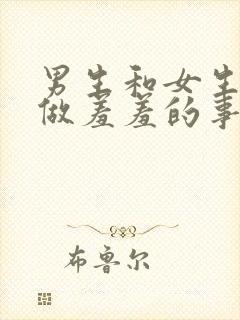 男生和女生
做羞羞的事
布鲁尔